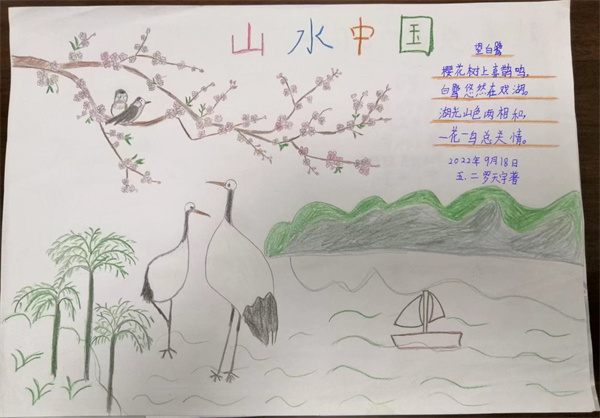 山水中国
望白鹭
樱花树上喜鹊鸣,
白鹭悠然在戏湖。
湖光山色两相和,
一花一鸟总关情。
2022年9月18日
五.二罗天宇著